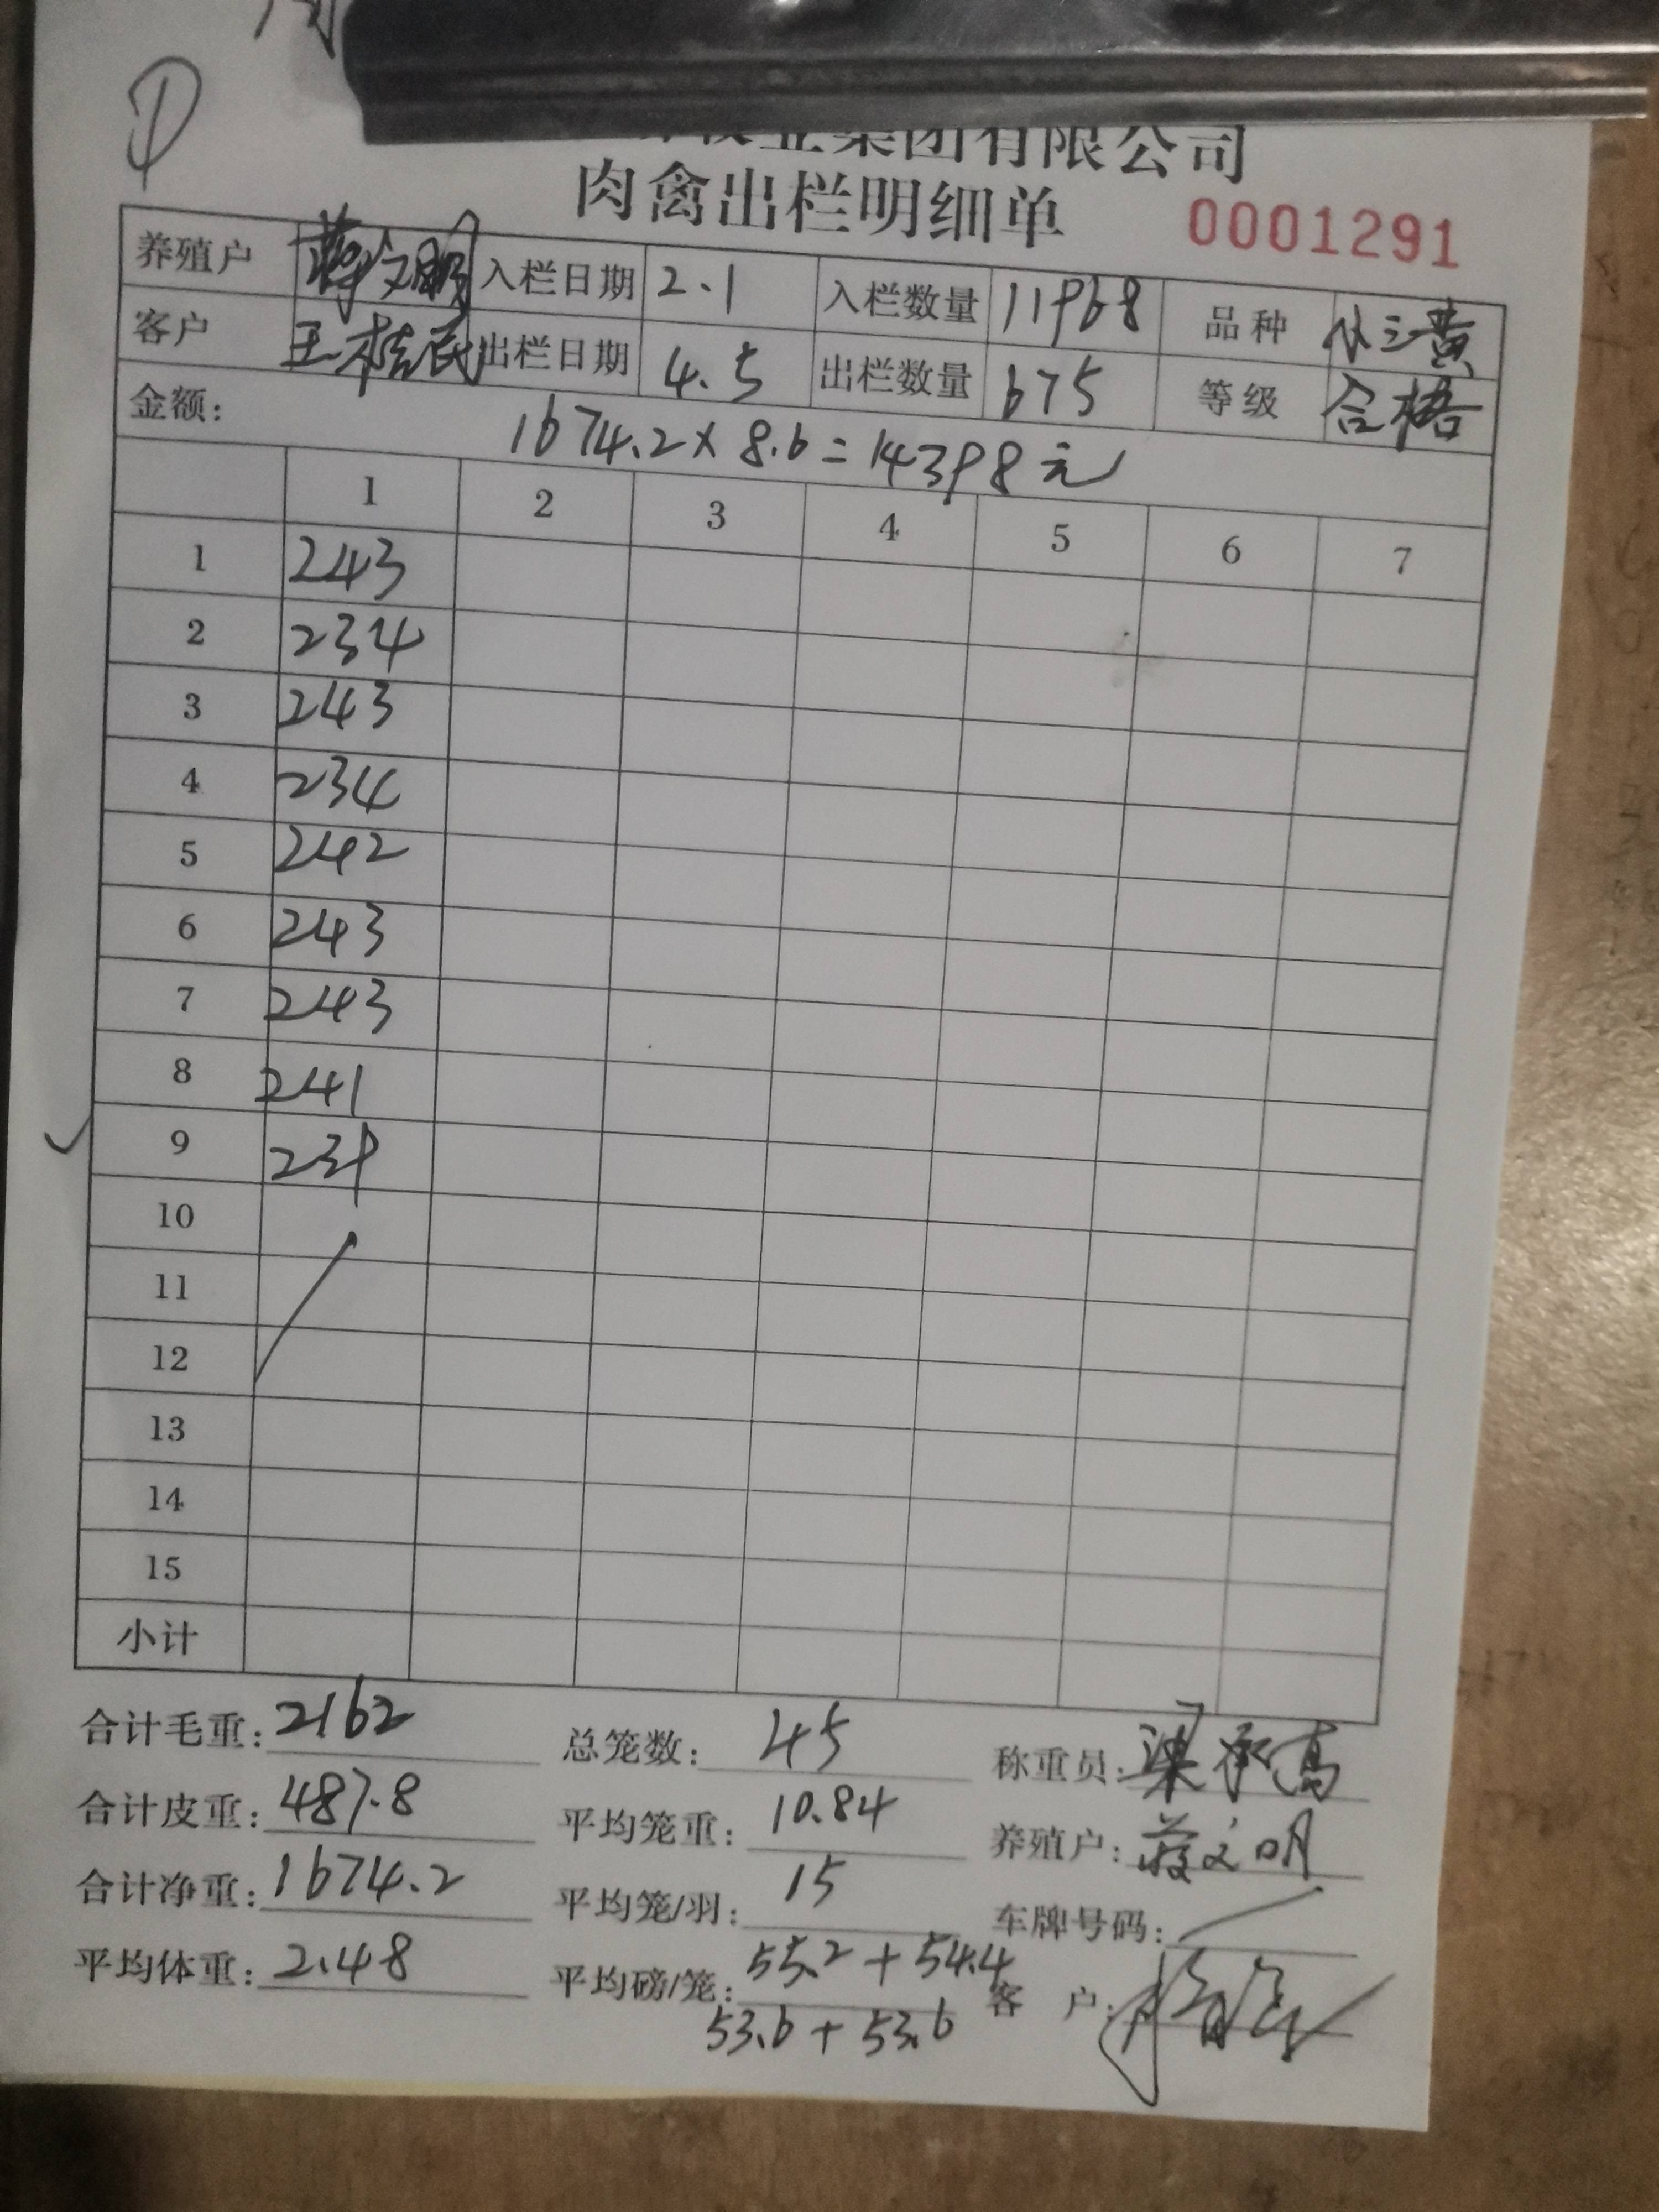 ①
牧业集团有限公司
肉禽出栏明细单 0001291
养殖户 蒋文明 入栏日期 2.1 入栏数量 11968 品种 小三黄
客户 王桂民 出栏日期 4.5 出栏数量 675 等级 合格
金额: 1674.2×8.6=14398元
1 2 3 4 5 6 7
1 243
2 234
3 243
4 234
5 242
6 243
7 243
8 241
9 239
10
11
12
13
14
15
小计
合计毛重: 2162 总笼数: 45 称重员: 梁承高
合计皮重: 487.8 平均笼重: 10.84 养殖户: 蒋文明
合计净重: 1674.2 平均笼/羽: 15 车牌号码:
平均体重: 2.48 平均磅/笼: 55.2+54.4 客 户:
53.6+53.6